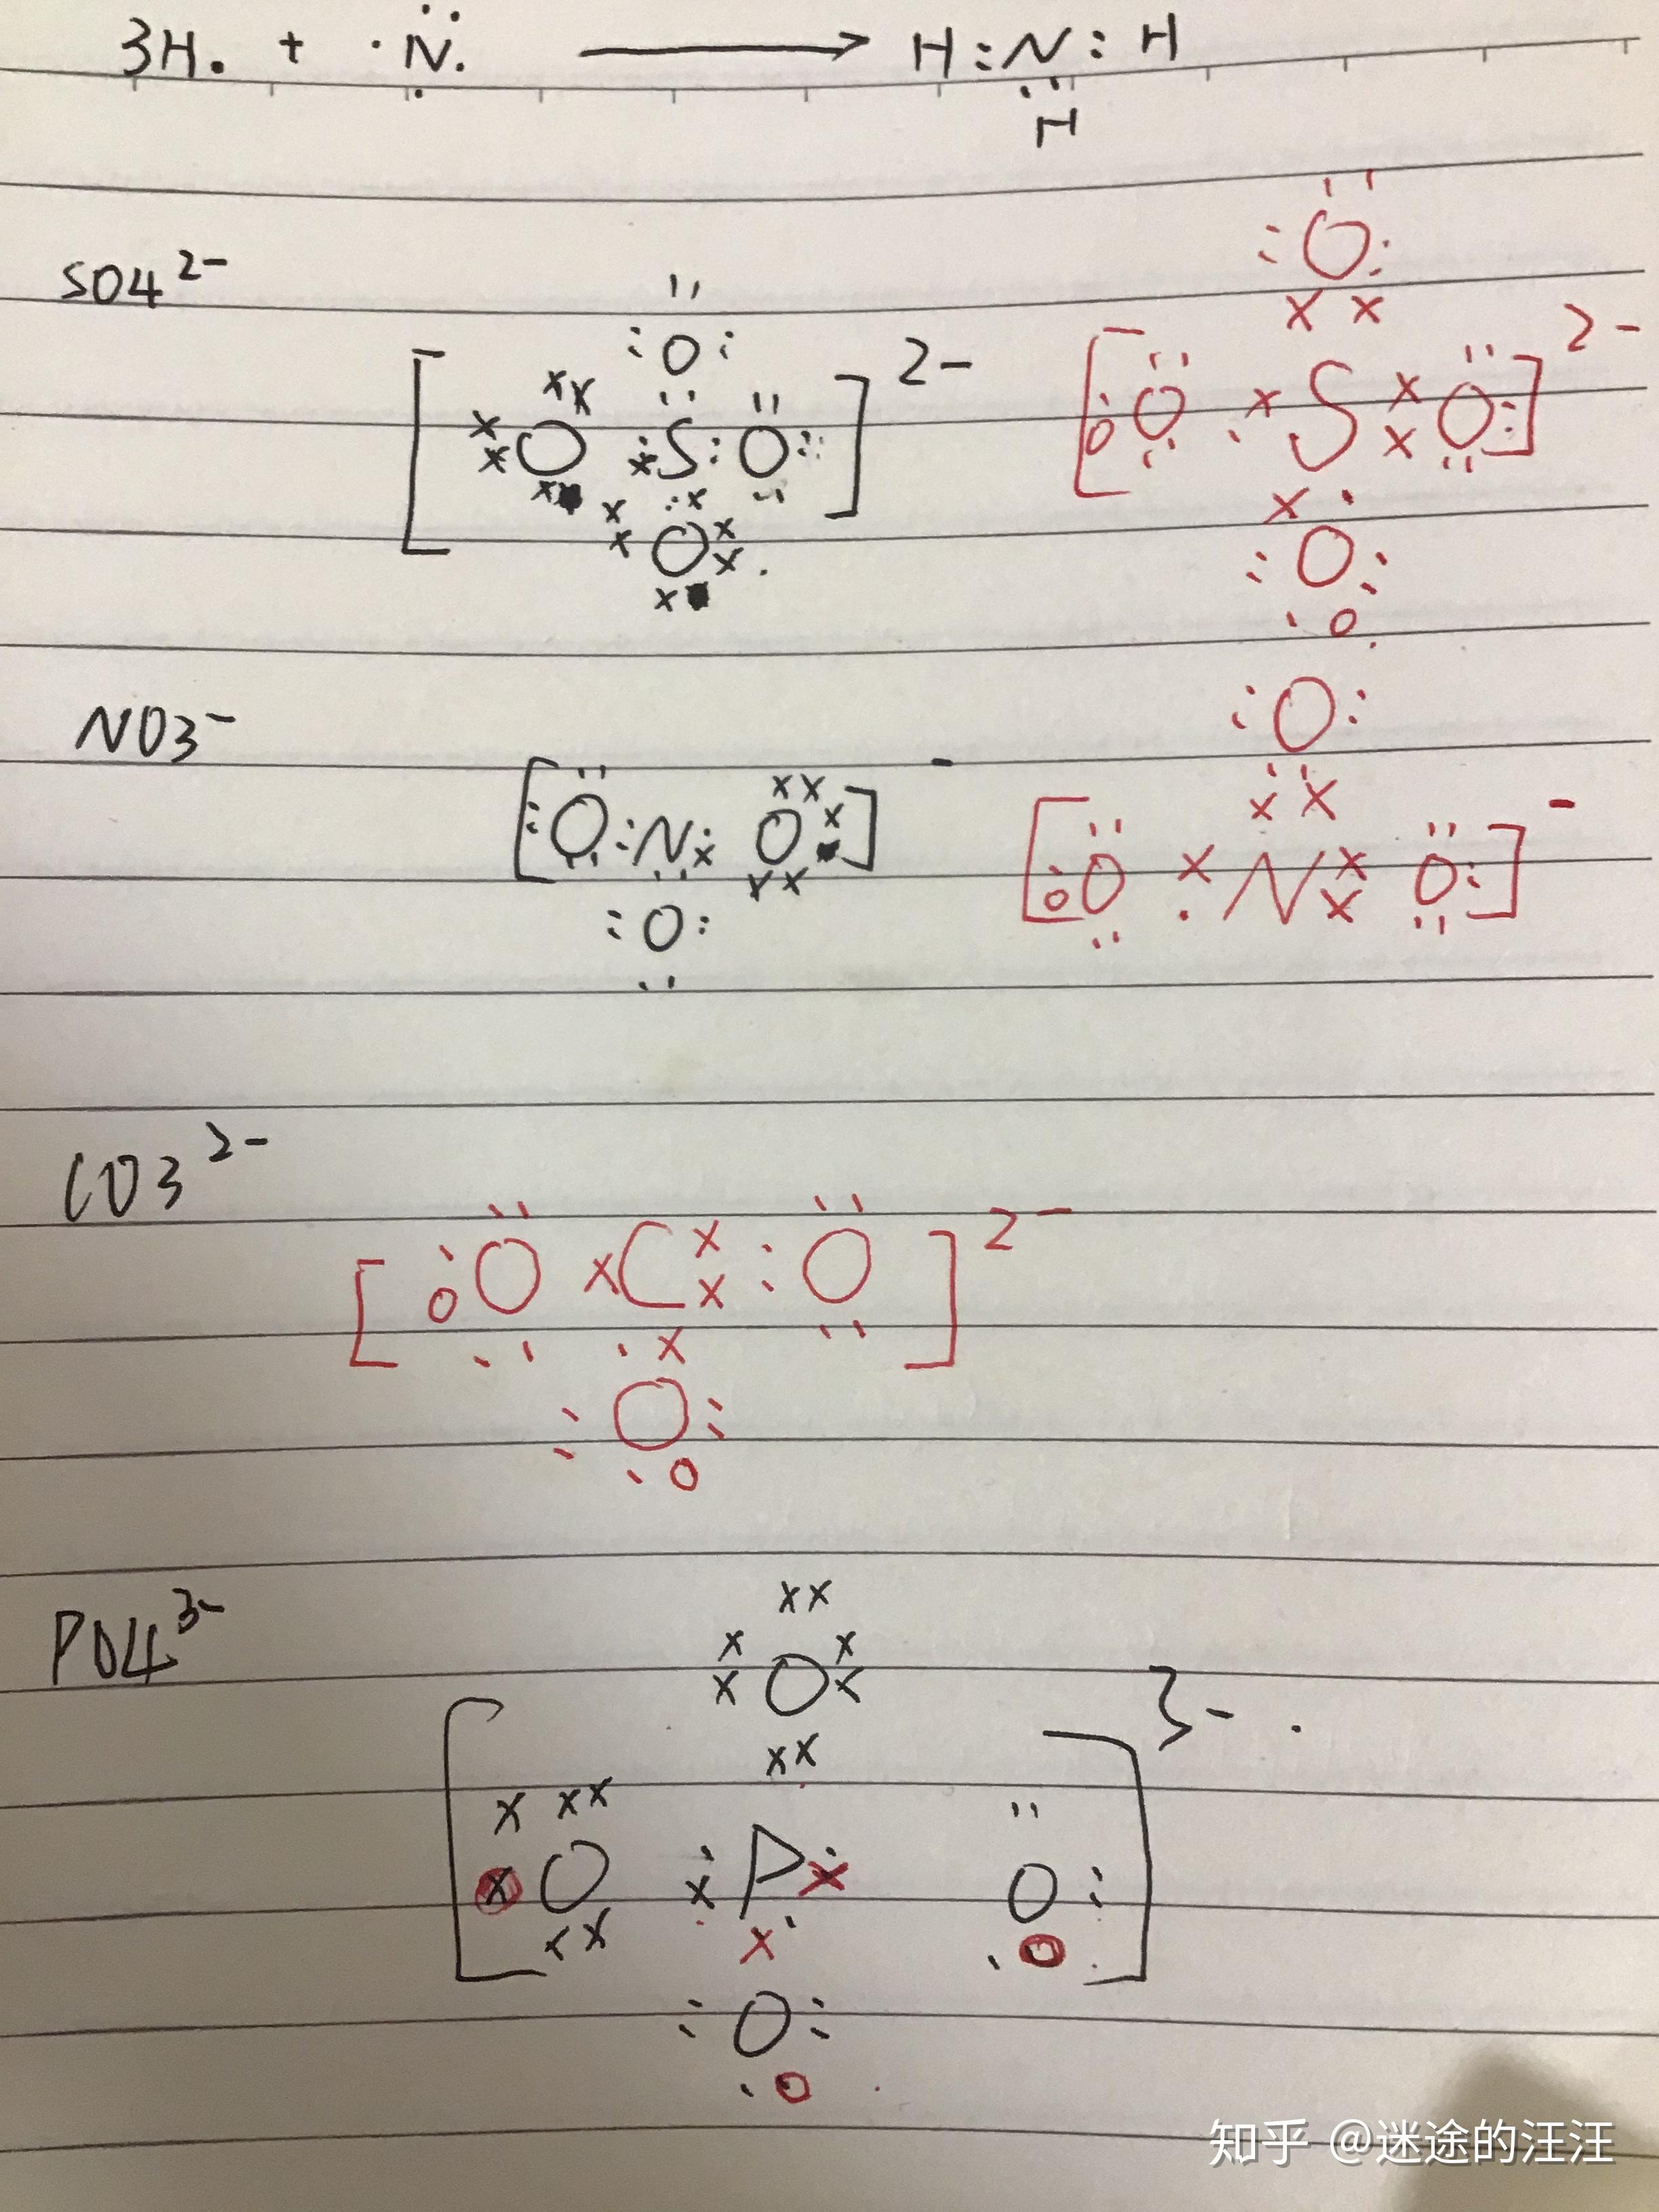 3H· + ·N̈· ⟶ H:N:H
H
SO4²⁻
:O: :O:
[O S:O:]²⁻ [O S O:]²⁻
O :O:
NO3⁻
:O:
[:O:N O]⁻ [O N O:]⁻
:O:
CO3²⁻
[O C:O]²⁻
:O:
PO4³⁻
O
[O P O:]³⁻
:O:
知乎 @迷途的汪汪